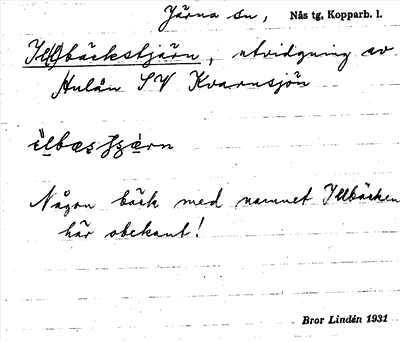 Järna sn, Nås tg, Kopparb. l.
Il(l)bäckstjärn, utvidgning av
Hulån SV Kvarnsjön
Någon bäck med namnet Illbäcken
här obekant!
Bror Lindén 1931